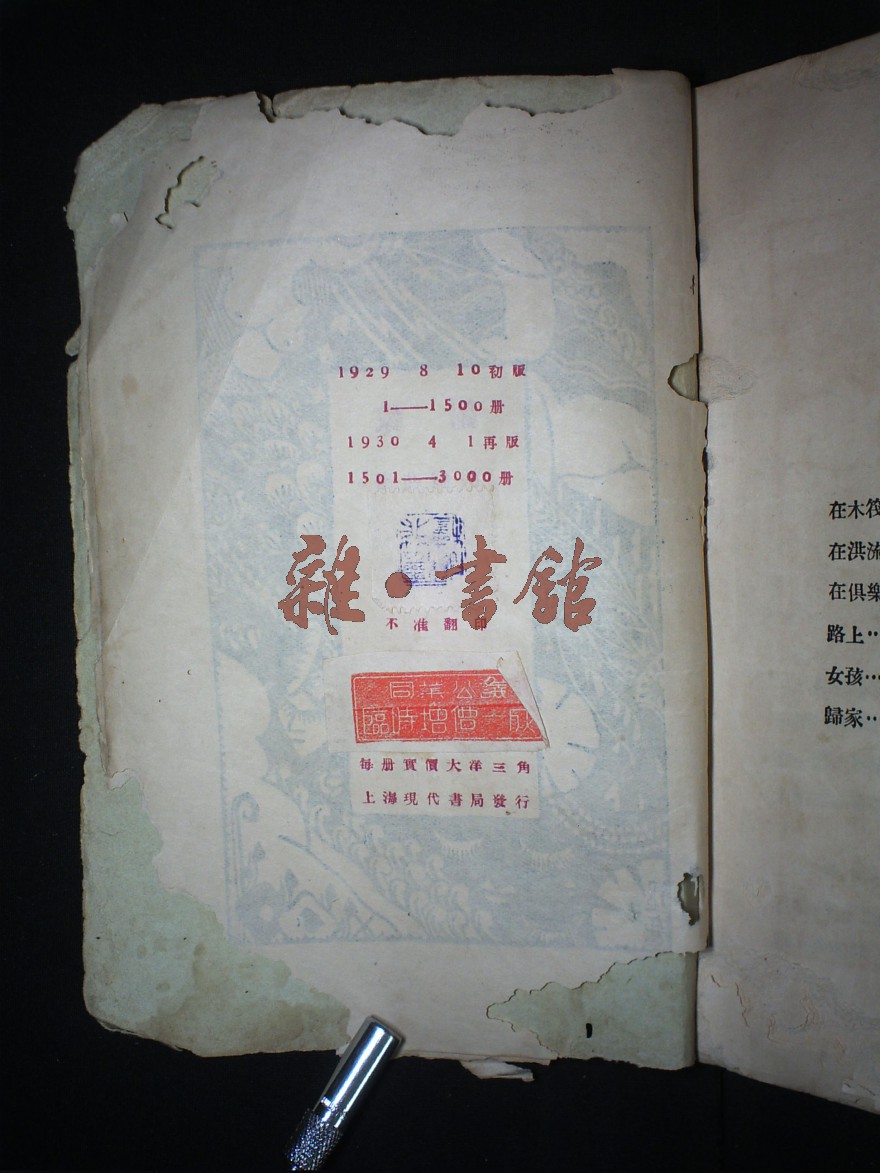 1929 8 10初版
1——1500册
1930 4 1再版
1501——3000册
雜·書館
不准翻印
同業公議
臨時增價一成
每册實價大洋三角
上海現代書局發行
在木筏
在洪流
在俱樂
路上··
女孩···
歸家··